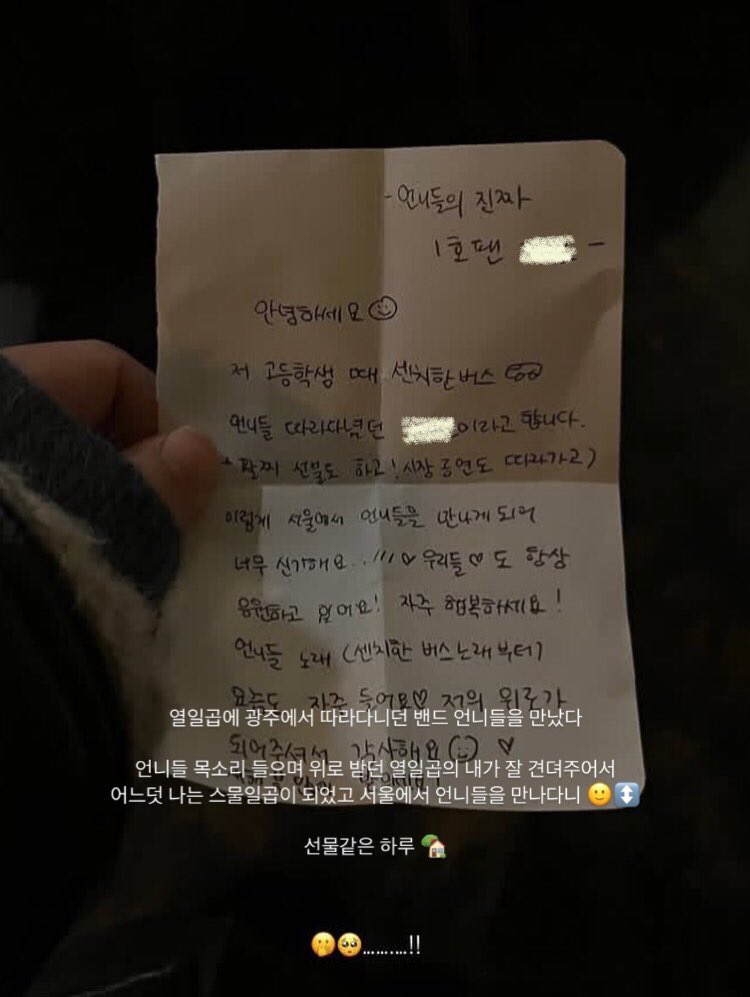 -언니들의 진짜
1호팬 -
안녕하세요
저 고등학생 때 센치한버스
언니들 따라다녔던 이라고 합니다.
팔찌 선물도 하고! 시장 공연도 따라가고)
이렇게 서울에서 언니들을 만나게 되어
너무 신기해요..!!! ♡ 우리들♡ 도 항상
응원하고 있어요! 자주 행복하세요!
언니들 노래 (센치한 버스노래부터)
요즘도 자주 들어요♡ 저의 위로가
열일곱에 광주에서 따라다니던 밴드 언니들을 만났다
되어주셔서 감사해요 ♡
언니들 목소리 들으며 위로 받던 열일곱의 내가 잘 견뎌주어서
어느덧 나는 스물일곱이 되었고 서울에서 언니들을 만나다니 🙂↕️
선물같은 하루 🏡
🤭🥹..........!!